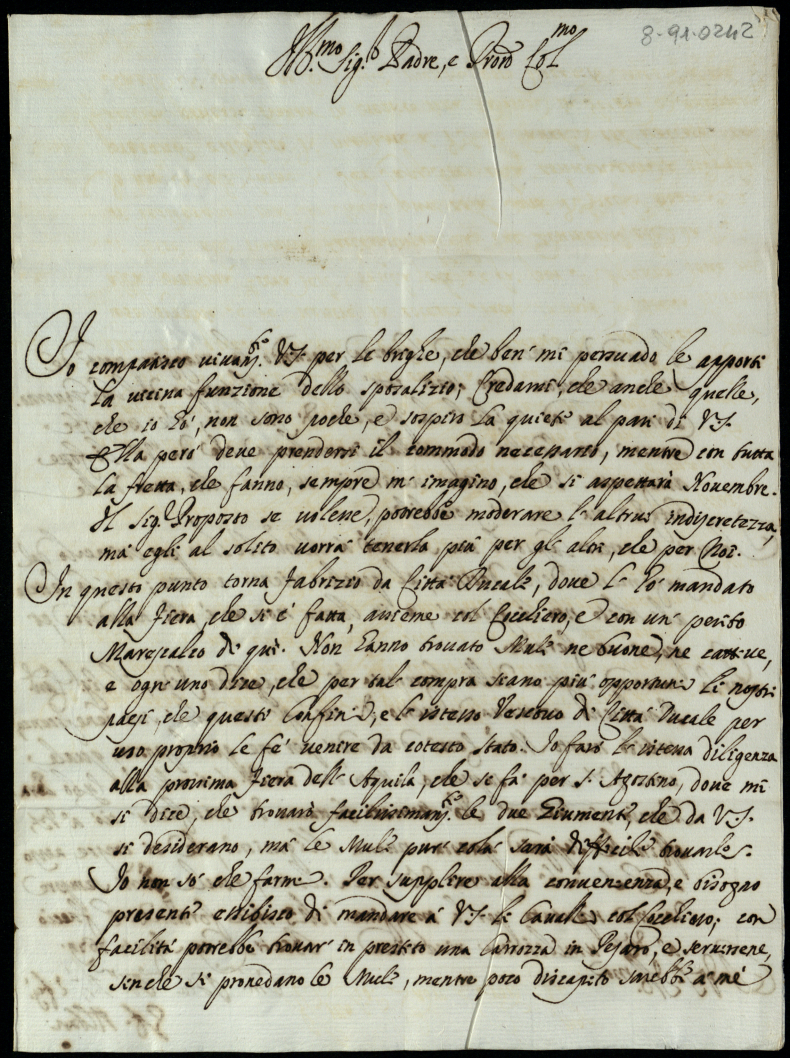 8-91-0242
Ill.mo Sig.r Padre, e Prone Col.mo
Io compatisco vivam.te V.S. per le brighe, che ben mi persuado le apporti
la vicina funzione dello sposalizio; Credami, che anche quelle,
che io hò, non sono poche, e sospiro la quiete al pari di V.S.
Ella però deve prendersi il commodo necessario, mentre con tutta
la fretta, che fanno, sempre m'imagino, che si aspettarà Novembre.
Il Sig.r Proposto se volesse, potrebbe moderare l'altrui indiscretezza,
mà egli al solito vorrà tenerla più per gl'altri, che per Noi.
In questo punto torna Fabrizio da Città Ducale, dove l'hò mandato
alla Fiera, che si è fatta, assieme col Cocchiero, e con un perito
Marescalco di quì. Non hanno trovato Mule ne buone, ne cattive,
e ogn'uno dice, che per tale compra siano più opportuni li nostri
paesi, che questi Confini, e lo stesso Vescovo di Città Ducale per
uso proprio le fè venire da cotesto Stato. Io farò l'istessa diligenza
alla prossima Fiera dell'Aquila, che si fà per S. Agostino, dove mi
si dice, che trovarà facilissimam.te le due Giumente, che da V.S.
si desiderano, mà le Mule pure colà sarà difficile trovarle.
Io non sò che farmi. Per supplire alla convenienza, e bisogno
presente essibisco di mandare à V.S. li Cavalli col Cocchiero; con
facilità potrebbe trovare in prestito una Carrozza in Pesaro, e servirsene,
sinche si provedano le Mule, mentre poco discapito sarebbe à mè